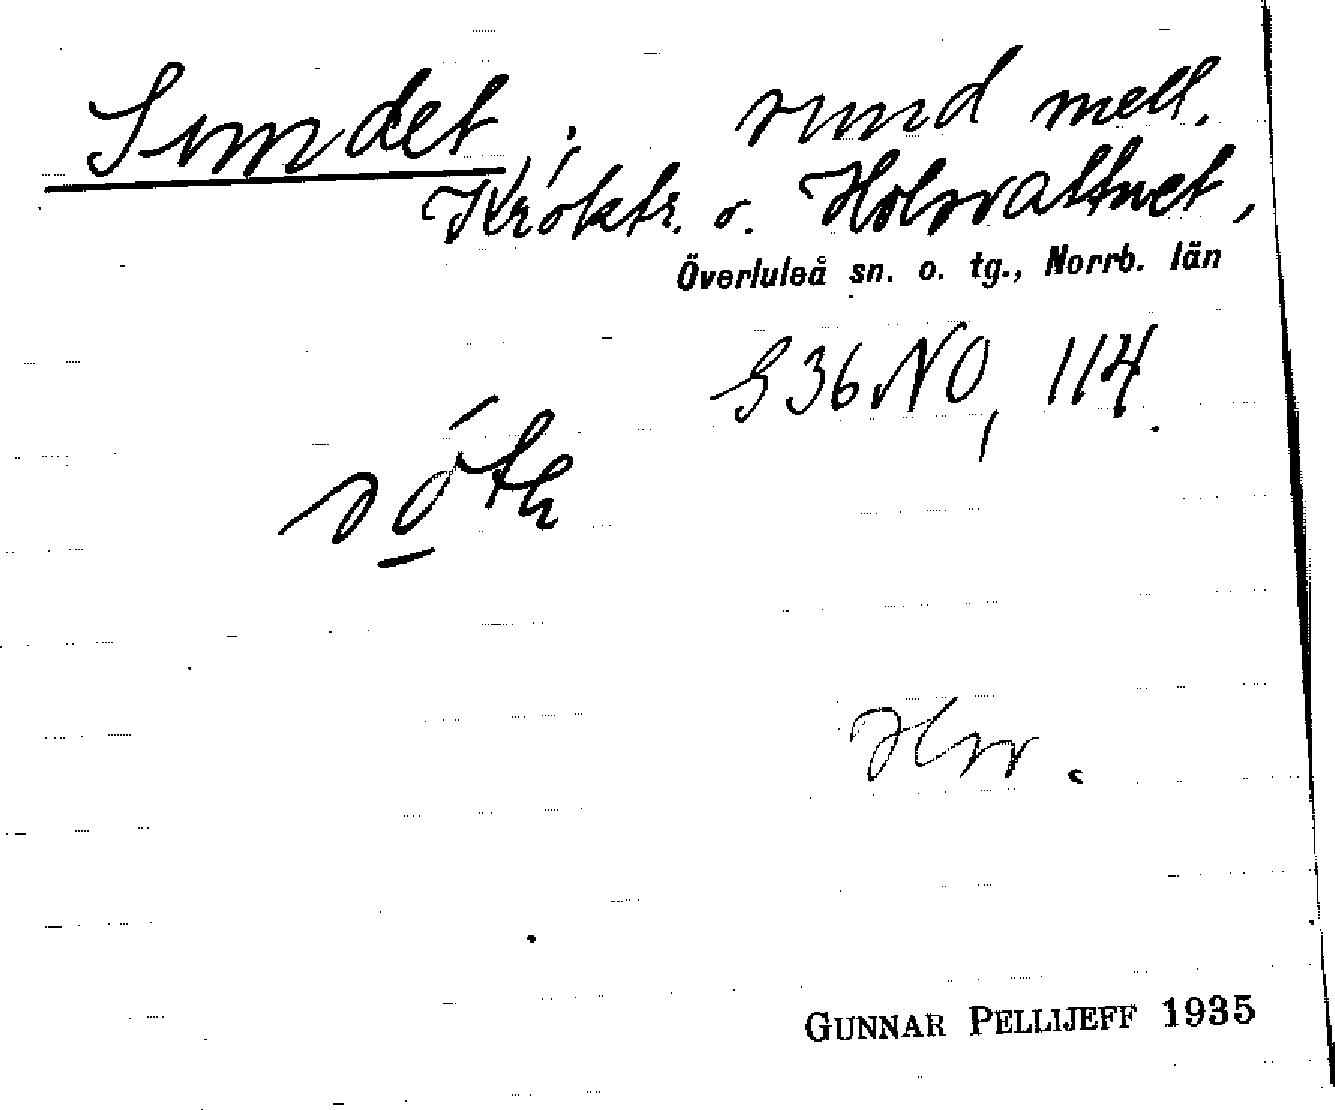 Sundet, sund mell.
Króktr. o. Holsvattnet,
Överluleå sn. o. tg., Norrb. län
G 36 NO, 114.
GUNNAR PELLIJEFF 1935